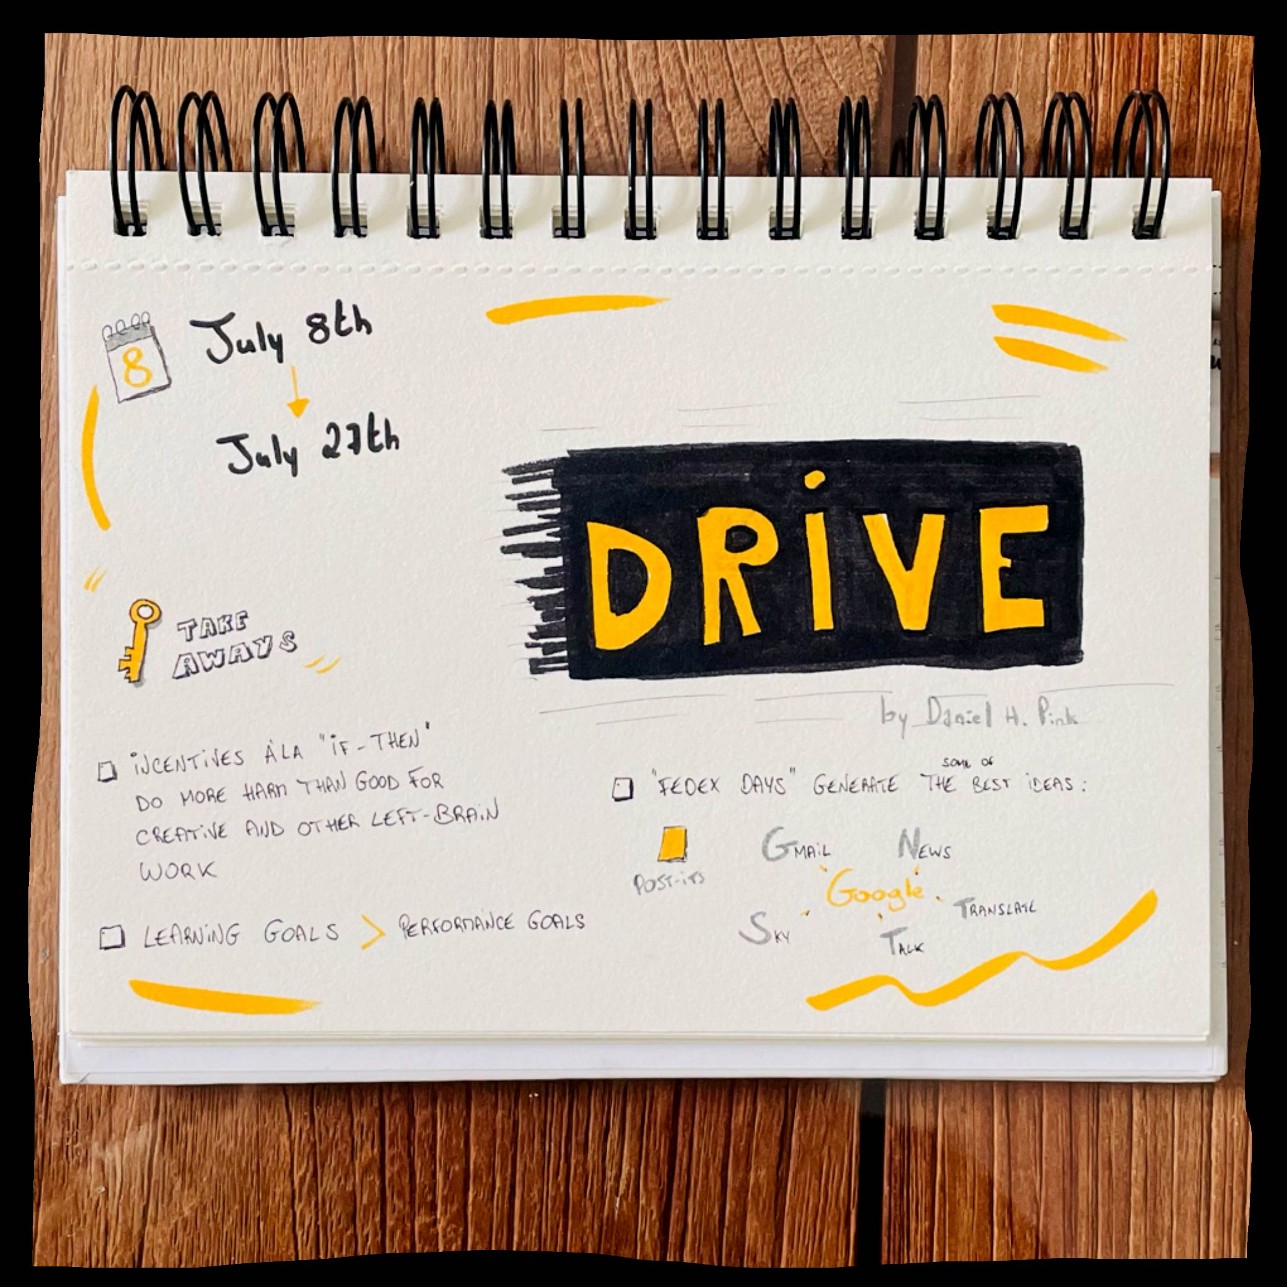 8
July 8th
July 27th
DRiVE
by Daniel H. Pink
TAKE
AWAYS
iNCENTiVES ÀLA "iF-THEN"
DO MORE HARM THAN GOOD FOR
CREATiVE AND OTHER LEFT-BRAiN
WORK
LEARNiNG GOALS > PERFORMANCE GOALS
"FEDEX DAYS" GENERATE SOME OF THE BEST iDEAS:
POST-iTS
GMAiL NEWS
Google
SKY TALK TRANSLATE